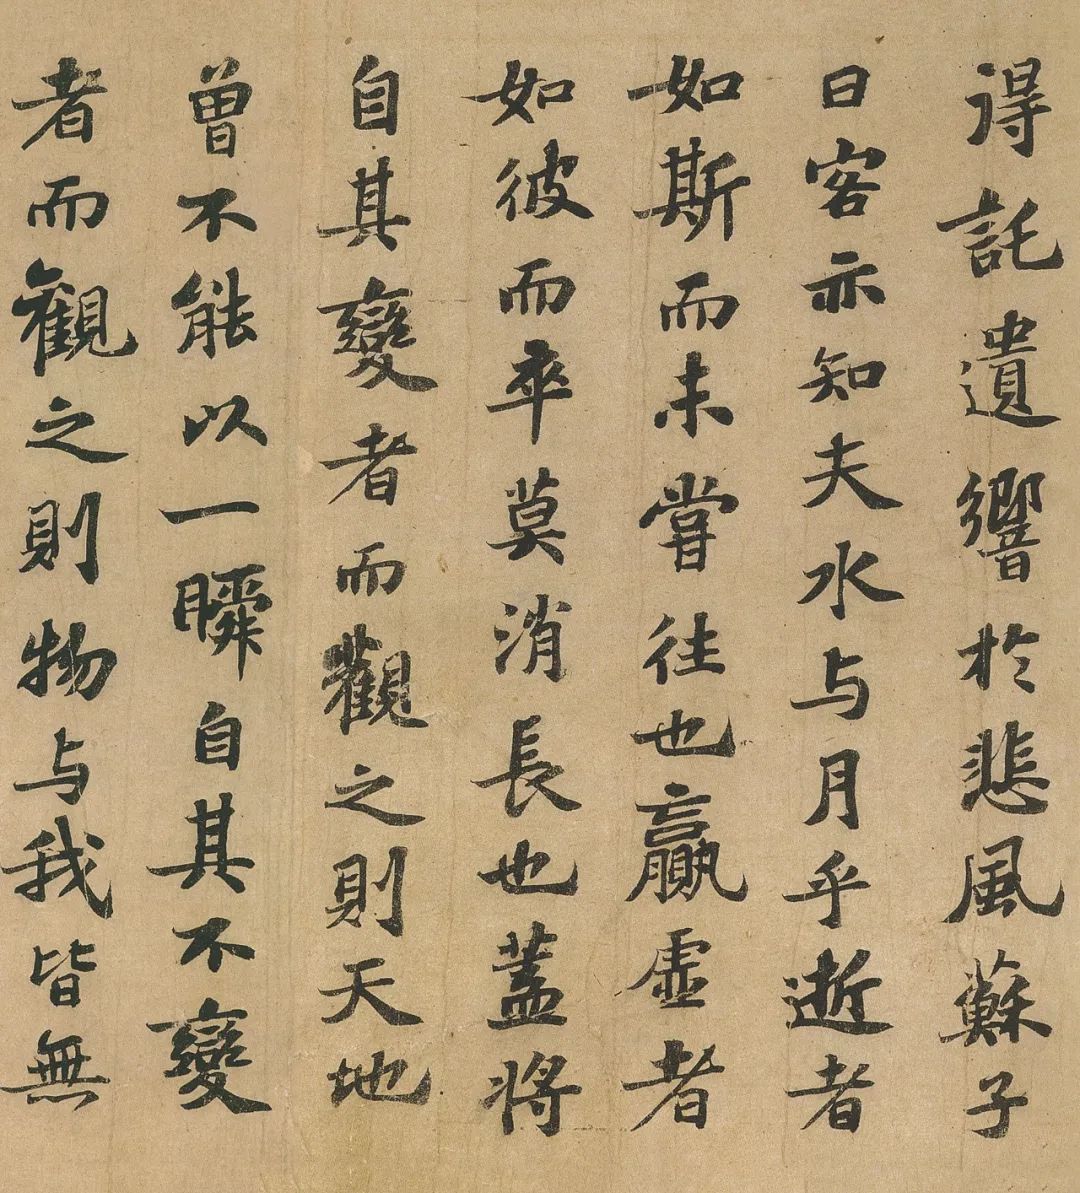 得託遺響於悲風蘇子
曰客亦知夫水与月乎逝者
如斯而未嘗往也贏虛者
如彼而卒莫消長也蓋將
自其變者而觀之則天地
曾不能以一瞬自其不變
者而觀之則物与我皆無